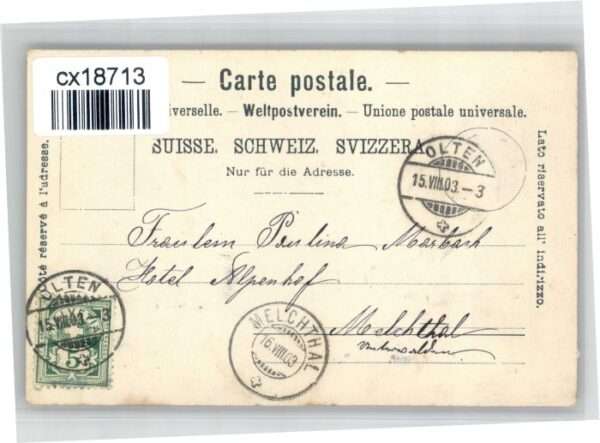 cx18713
— Carte postale. —
iverselle. — Weltpostverein. — Unione postale universale.
SUISSE. SCHWEIZ. SVIZZERA
Nur für die Adresse.
OLTEN
15.VIII.03.–3
Côté réservé à l'adresse.
Lato riservato all' indirizzo.
Fräulein Paulina Marbach
Hotel Alpenhof
Melchthal
Unterwalden
OLTEN
15.VIII.03.–3
5
MELCHTHAL
16.VIII.03